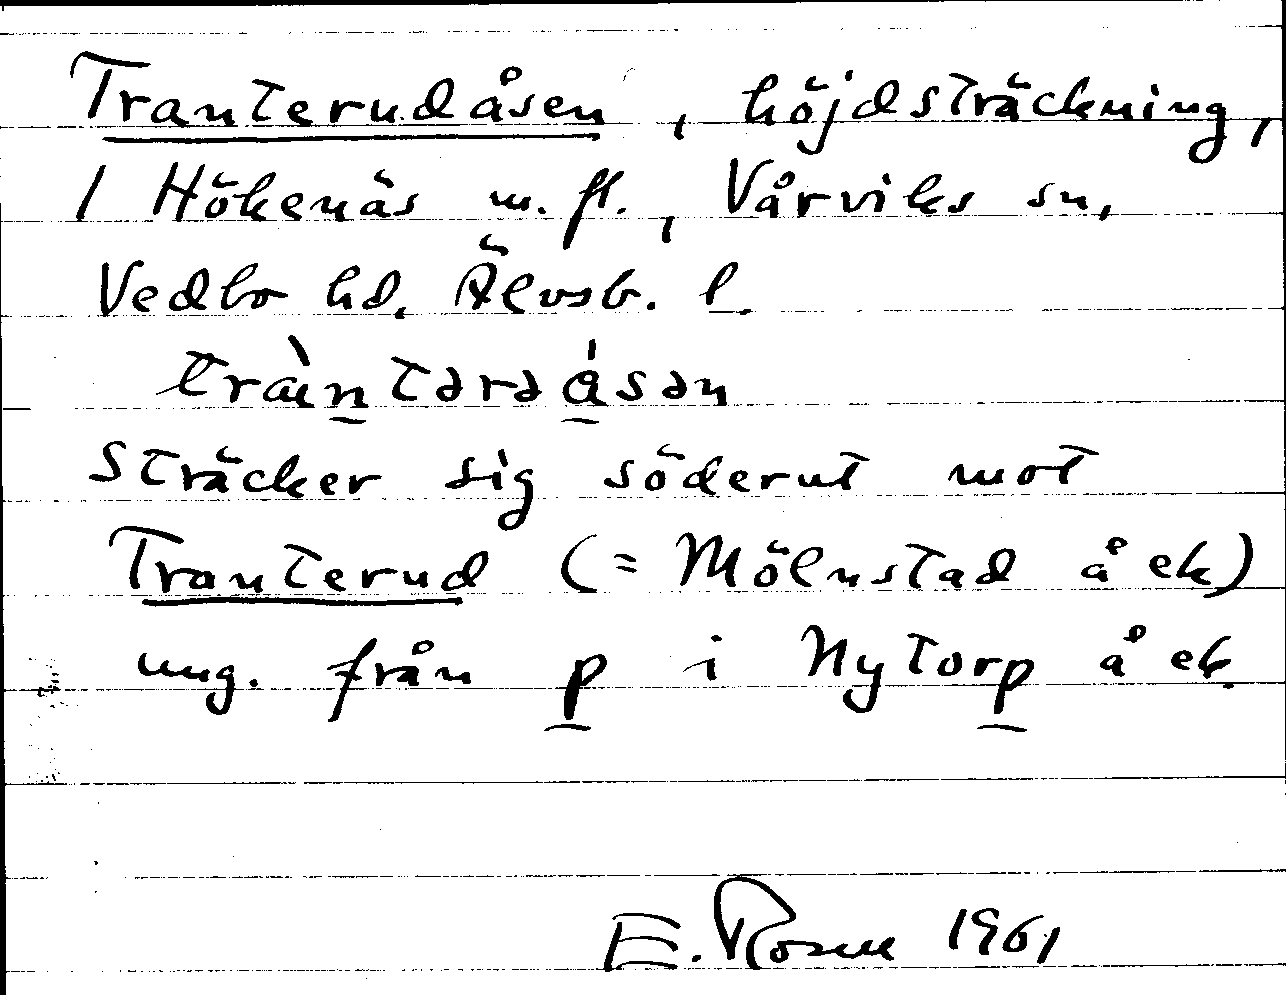 Tranterudåsen, höjdsträckning,
/ Hökenäs m. fl., Vårviks sn,
Vedbo hd, Älvsb. l.
tràntərəåsən
sträcker sig söderut mot
Tranterud (= Mölnstad å ek)
ung. från p i Nytorp å ek.
E. Rosell 1961